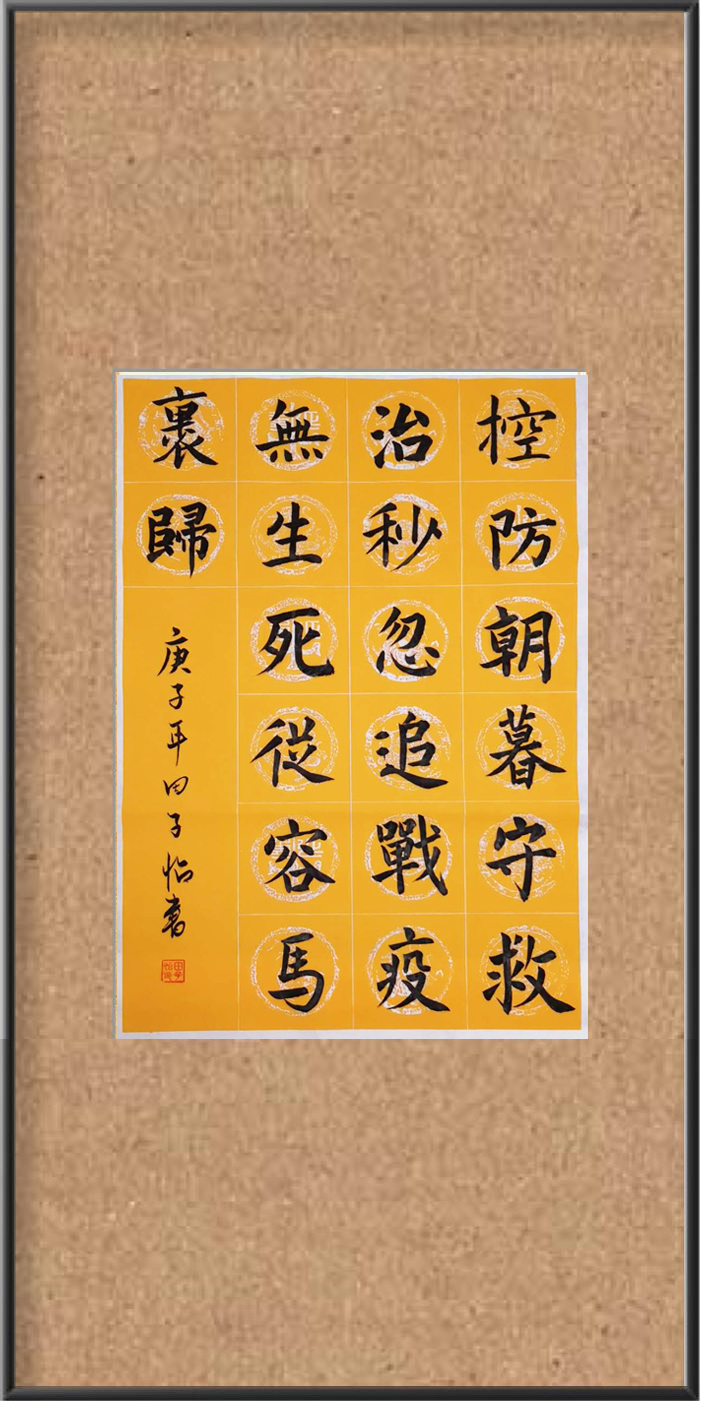 控防朝暮守救
治秒忽追戰疫
無生死從容馬
裹歸
庚子年田子怡書